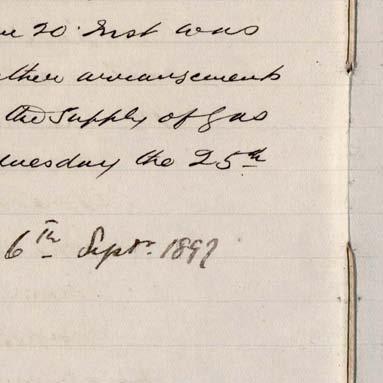 20 Inst was
ther arrangements
the Supply of Gas
uesday the 25th
6th Septr. 1897